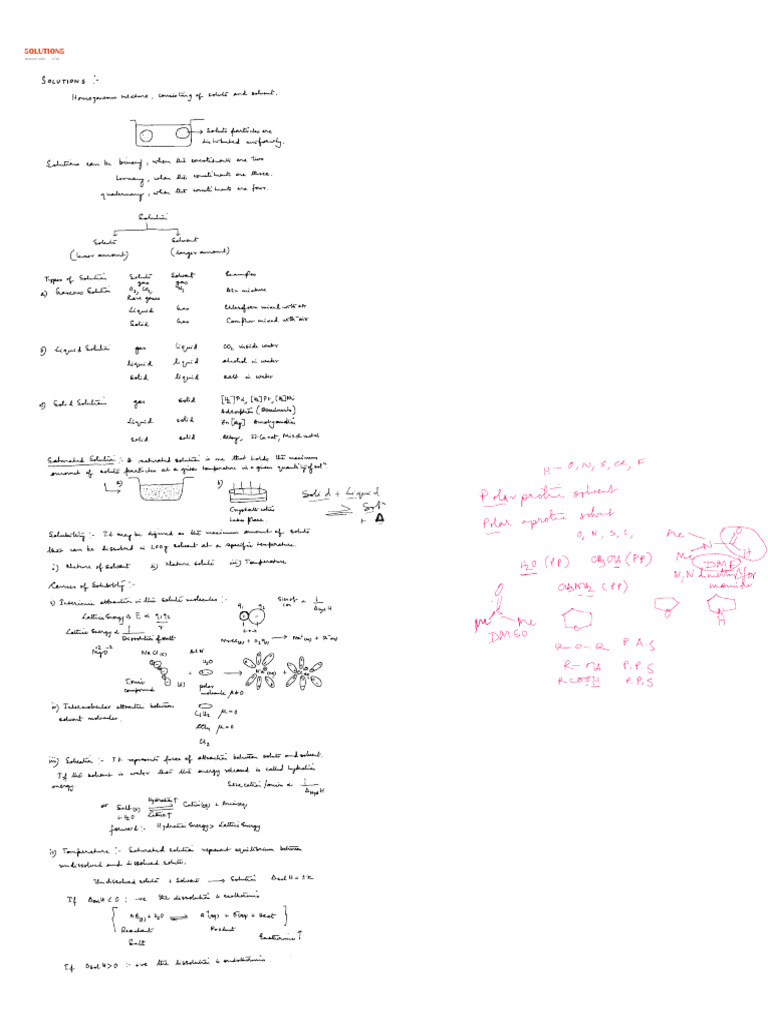 SOLUTIONS
SOLUTIONS :-
Homogeneous mixture, consisting of solute and solvent.
→ Solute particles are
distributed uniformly.
Solutions can be binary, when the constituents are two.
ternary, when the constituents are three.
quaternary, when the constituents are four.
Solution
Solute Solvent
(lesser amount) (larger amount)
Types of Solution Solute Solvent Examples
gas gas
a) Gaseous Solution O2, CO2, N2 Air mixture
Rare gases
Liquid Gas Chloroform mixed with air
Solid Gas Camphor mixed with air
b) Liquid Solution gas liquid CO2 inside water
liquid liquid alcohol in water
solid liquid salt in water
c) Solid Solution gas solid [H2]Pd, [H2]Pt, [H2]Ni
Adsorption
Liquid solid Zn[Hg] Amalgamation
solid solid Alloy, 22 Carat, Misch metal
Saturated Solution :- A saturated solution is one that holds the maximum
amount of solute particles at a given temperature in a given quantity of solⁿ
a) b)
Crystallization
Solid + Liquid
⇌ Solⁿ
+ Δ
Solubility :- It may be defined as the maximum amount of solute
that can be dissolved in 100g solvent at a specific temperature.
i) Nature of solvent ii) Nature solute iii) Temperature
Causes of Solubility :-
i) Interionic attraction in the solute molecules :-
q1 q2
Size of ion ∝ 1/ΔHydH
Lattice Energy ∝ E ∝ q1q2/r
Lattice Energy ∝ 1/Dissociation
Mg+2O-2
NaCl(s) + H2O → Na+ + Cl-
NaCl(s)
H2O
Ionic compound (s) + polar molecule μ≠0 →
ii) Intermolecular attraction between
solvent molecules.
C6H6 μ=0
CCl4 μ=0
iii) Solvation :- It represents force of attraction between solute and solvent.
If the solvent is water then the energy released is called hydration
energy.
Size cation/anion ∝ 1/ΔHydH
or Salt(s) + H2O Hydration↑ ⇌ Lattice↑ Cation(aq) + Anion(aq)
forward :- Hydration Energy > Lattice Energy
iv) Temperature :- Saturated solution represent equilibrium between
undissolved and dissolved solute.
Undissolved solute + Solvent → Solution ΔsolH = ±x
If ΔsolH < 0 :- -ve the dissolution is exothermic
[AB(s) + H2O ⇌ A+(aq) + B-(aq) + Heat]
Reactant Product
Salt Exothermic ↑
If ΔsolH > 0 :- +ve the dissolution is endothermic.
H – O, N, S, Cl, F
Polar protic solvent
Polar aprotic solvent
O, N, S, C,
H2O (PP) CH3OH (PP)
CH3NH2 (PP)
Me
N
Me
O
H
DMF
N,N dimethyl for
mamide
O
Me Me
DMSO
O
O
N
H
R–O–R P.A.S
R–OH P.P.S
RCOOH P.P.S